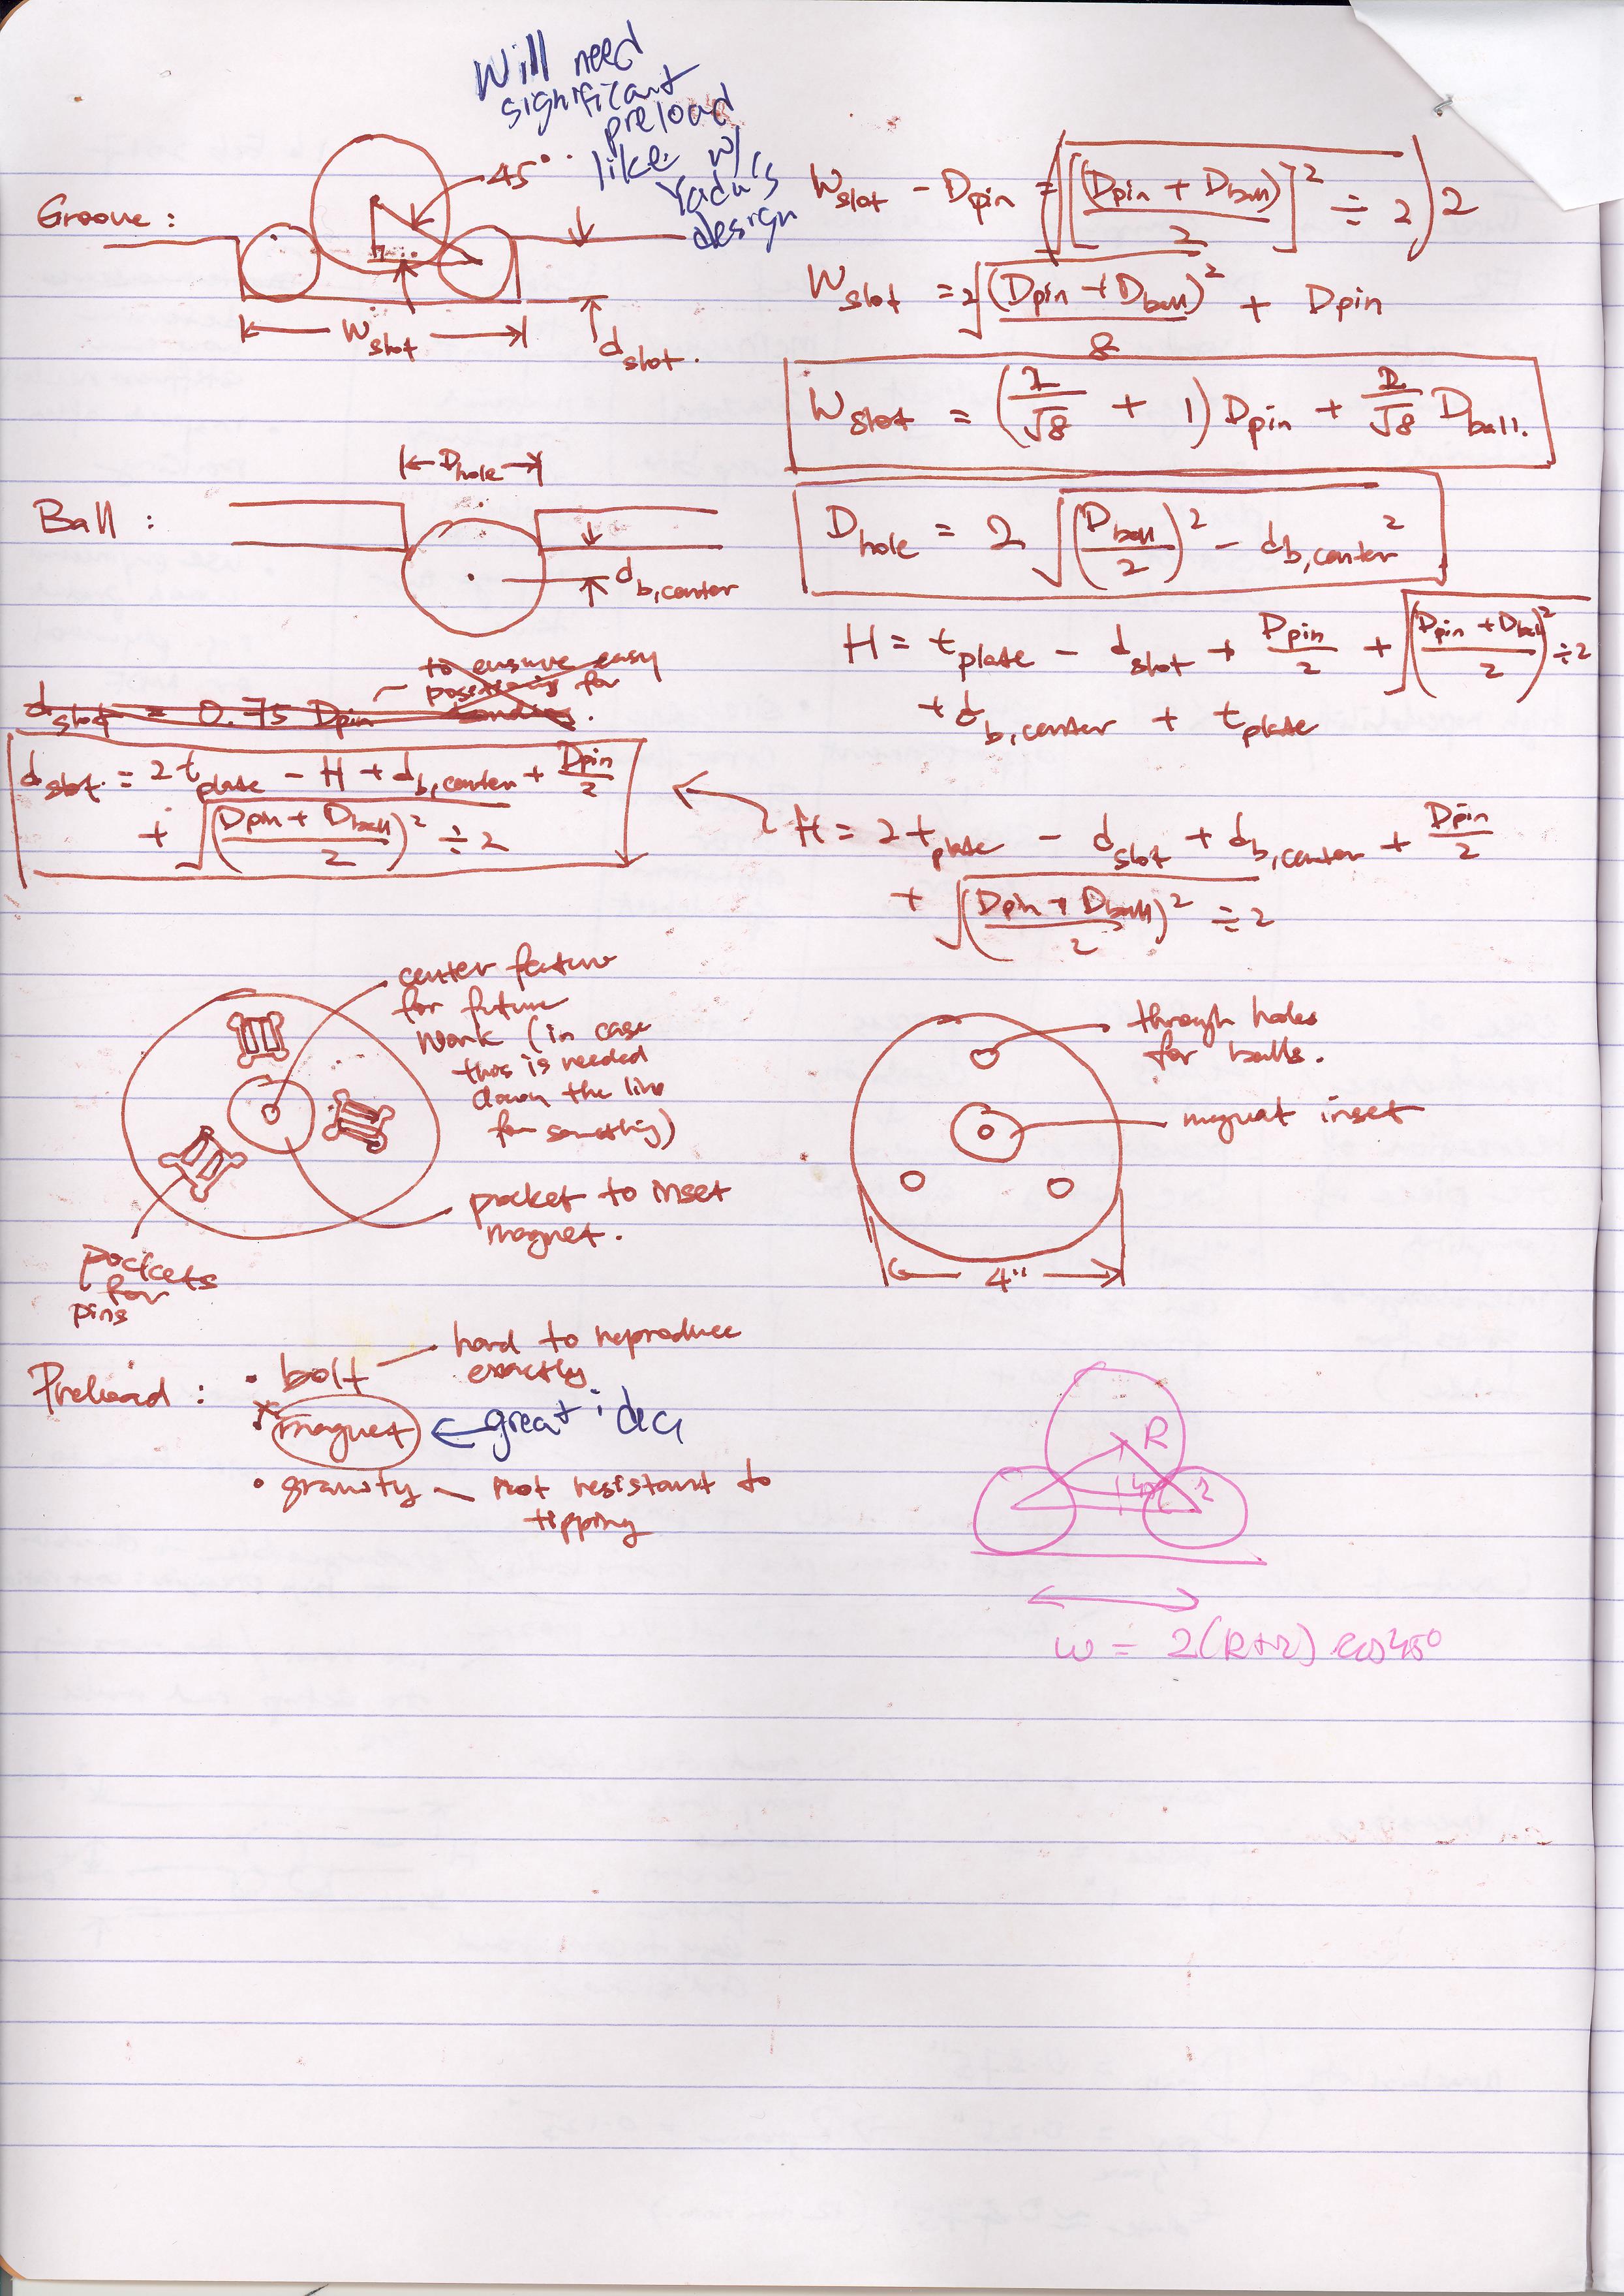 Will need
significant
preload
like w/
Yadu's
design
45°
Groove :
W slot
d slot.
W slot - D pin = ( √( [ (D pin + D ball) / 2 ]² ÷ 2 ) ) 2
W slot = 2 √( (D pin + D ball)² / 8 ) + D pin
W slot = ( 2/√8 + 1 ) D pin + 2/√8 D ball.
Ball :
D hole
d b,center
D hole = 2 √( (D ball / 2)² - d b,center² )
H = t plate - d slot + D pin / 2 + √( ( (D pin + D ball) / 2 )² ÷ 2 )
+ d b,center + t plate
d slot = 0.75 D pin
to ensure easy
positioning for
bonding.
d slot = 2 t plate - H + d b,center + D pin / 2
+ √( ( (D pin + D ball) / 2 )² ÷ 2 )
H = 2 t plate - d slot + d b,center + D pin / 2
+ √( ( (D pin + D ball) / 2 )² ÷ 2 )
center feature
for future
work (in case
this is needed
down the line
for something)
pocket to inset
magnet.
pockets
for
pins
through holes
for balls.
magnet inset
4"
Preload :
• bolt — hard to reproduce
exactly
* magnet ← great idea
• gravity — not resistant to
tipping
R
45°
r
w = 2(R+r) cos 45°